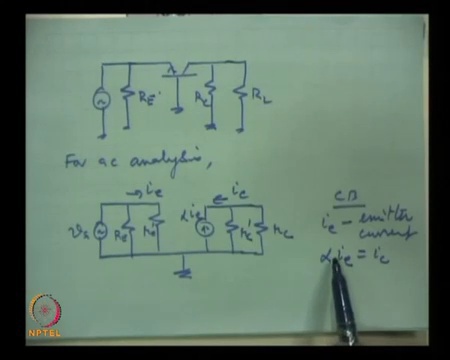 RE
RC
RL
For ac analysis,
ie
ic
vs
RE
αie
CB
ie - emitter
current
αie = ic
NPTEL